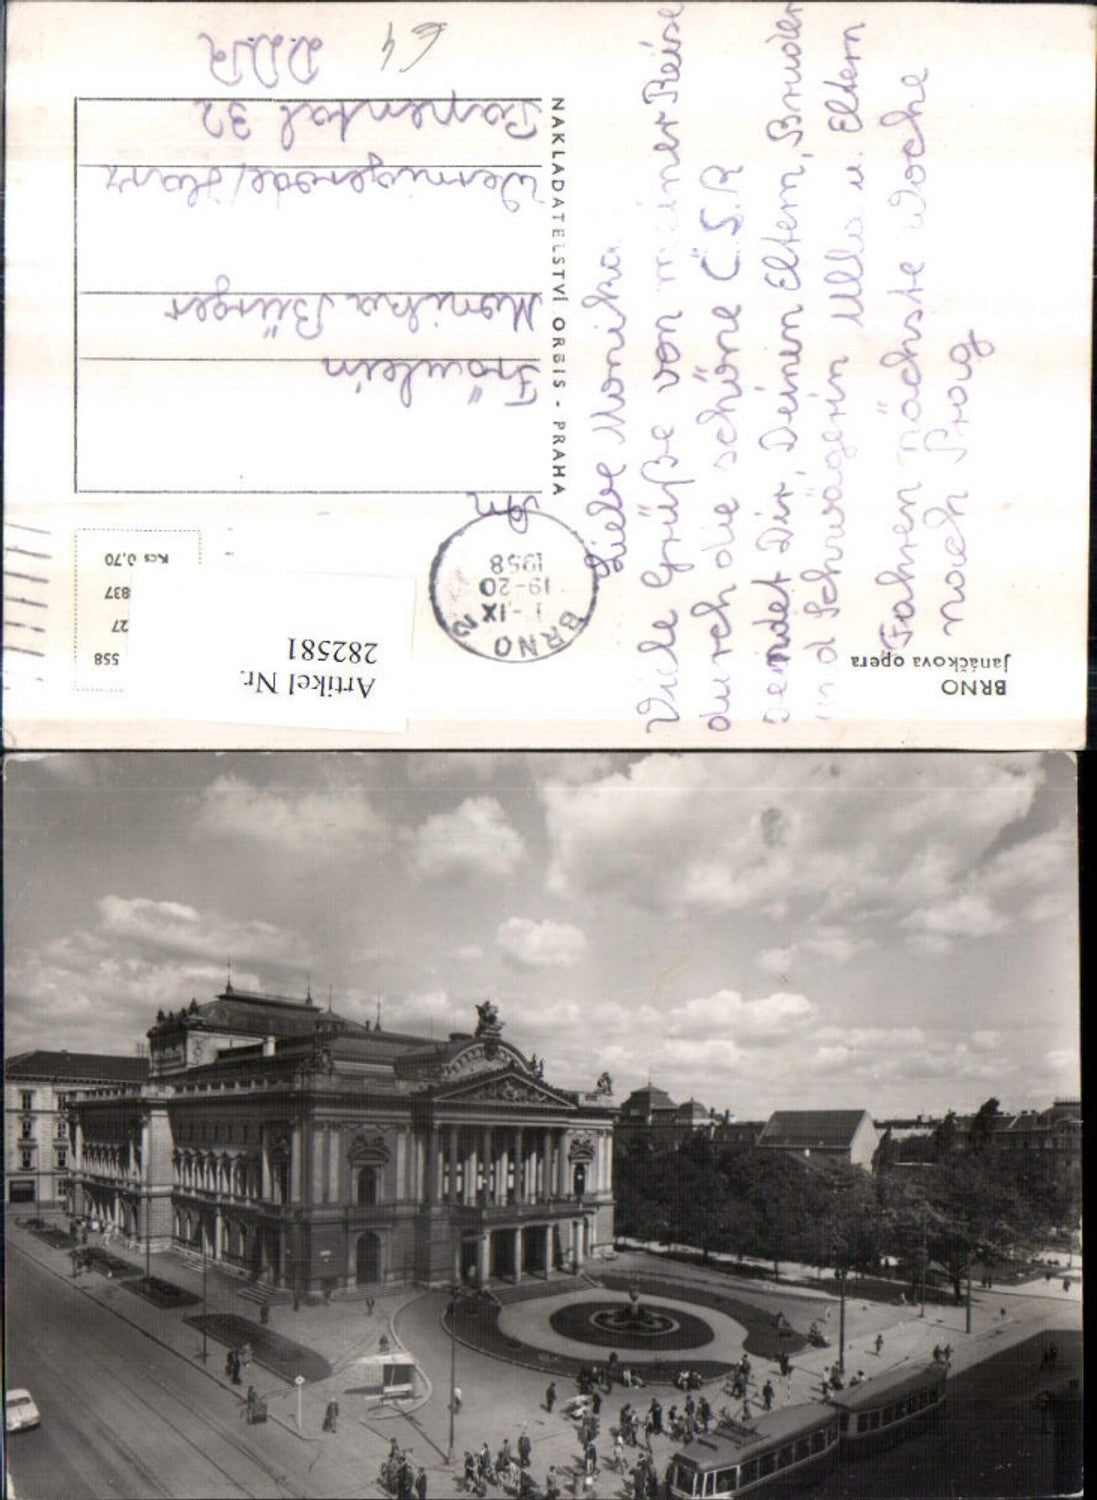 BRNO
Janáčkova opera
Liebe Monika
Viele Grüße von meiner Reise
durch die schöne Č.S.R
sendet Dir, Deinen Eltern, Bruder
und Schwägerin Ulla u. Eltern
Fahren nächste Woche
nach Prag
NAKLADATELSTVÍ ORBIS - PRAHA
BRNO 2
IX
19-20
1958
558
27
837
Kcs 0,70
Artikel Nr.
282581
An
Fräulein
Monika Bürger
Wernigerode/Harz
32
D.D.R
€4